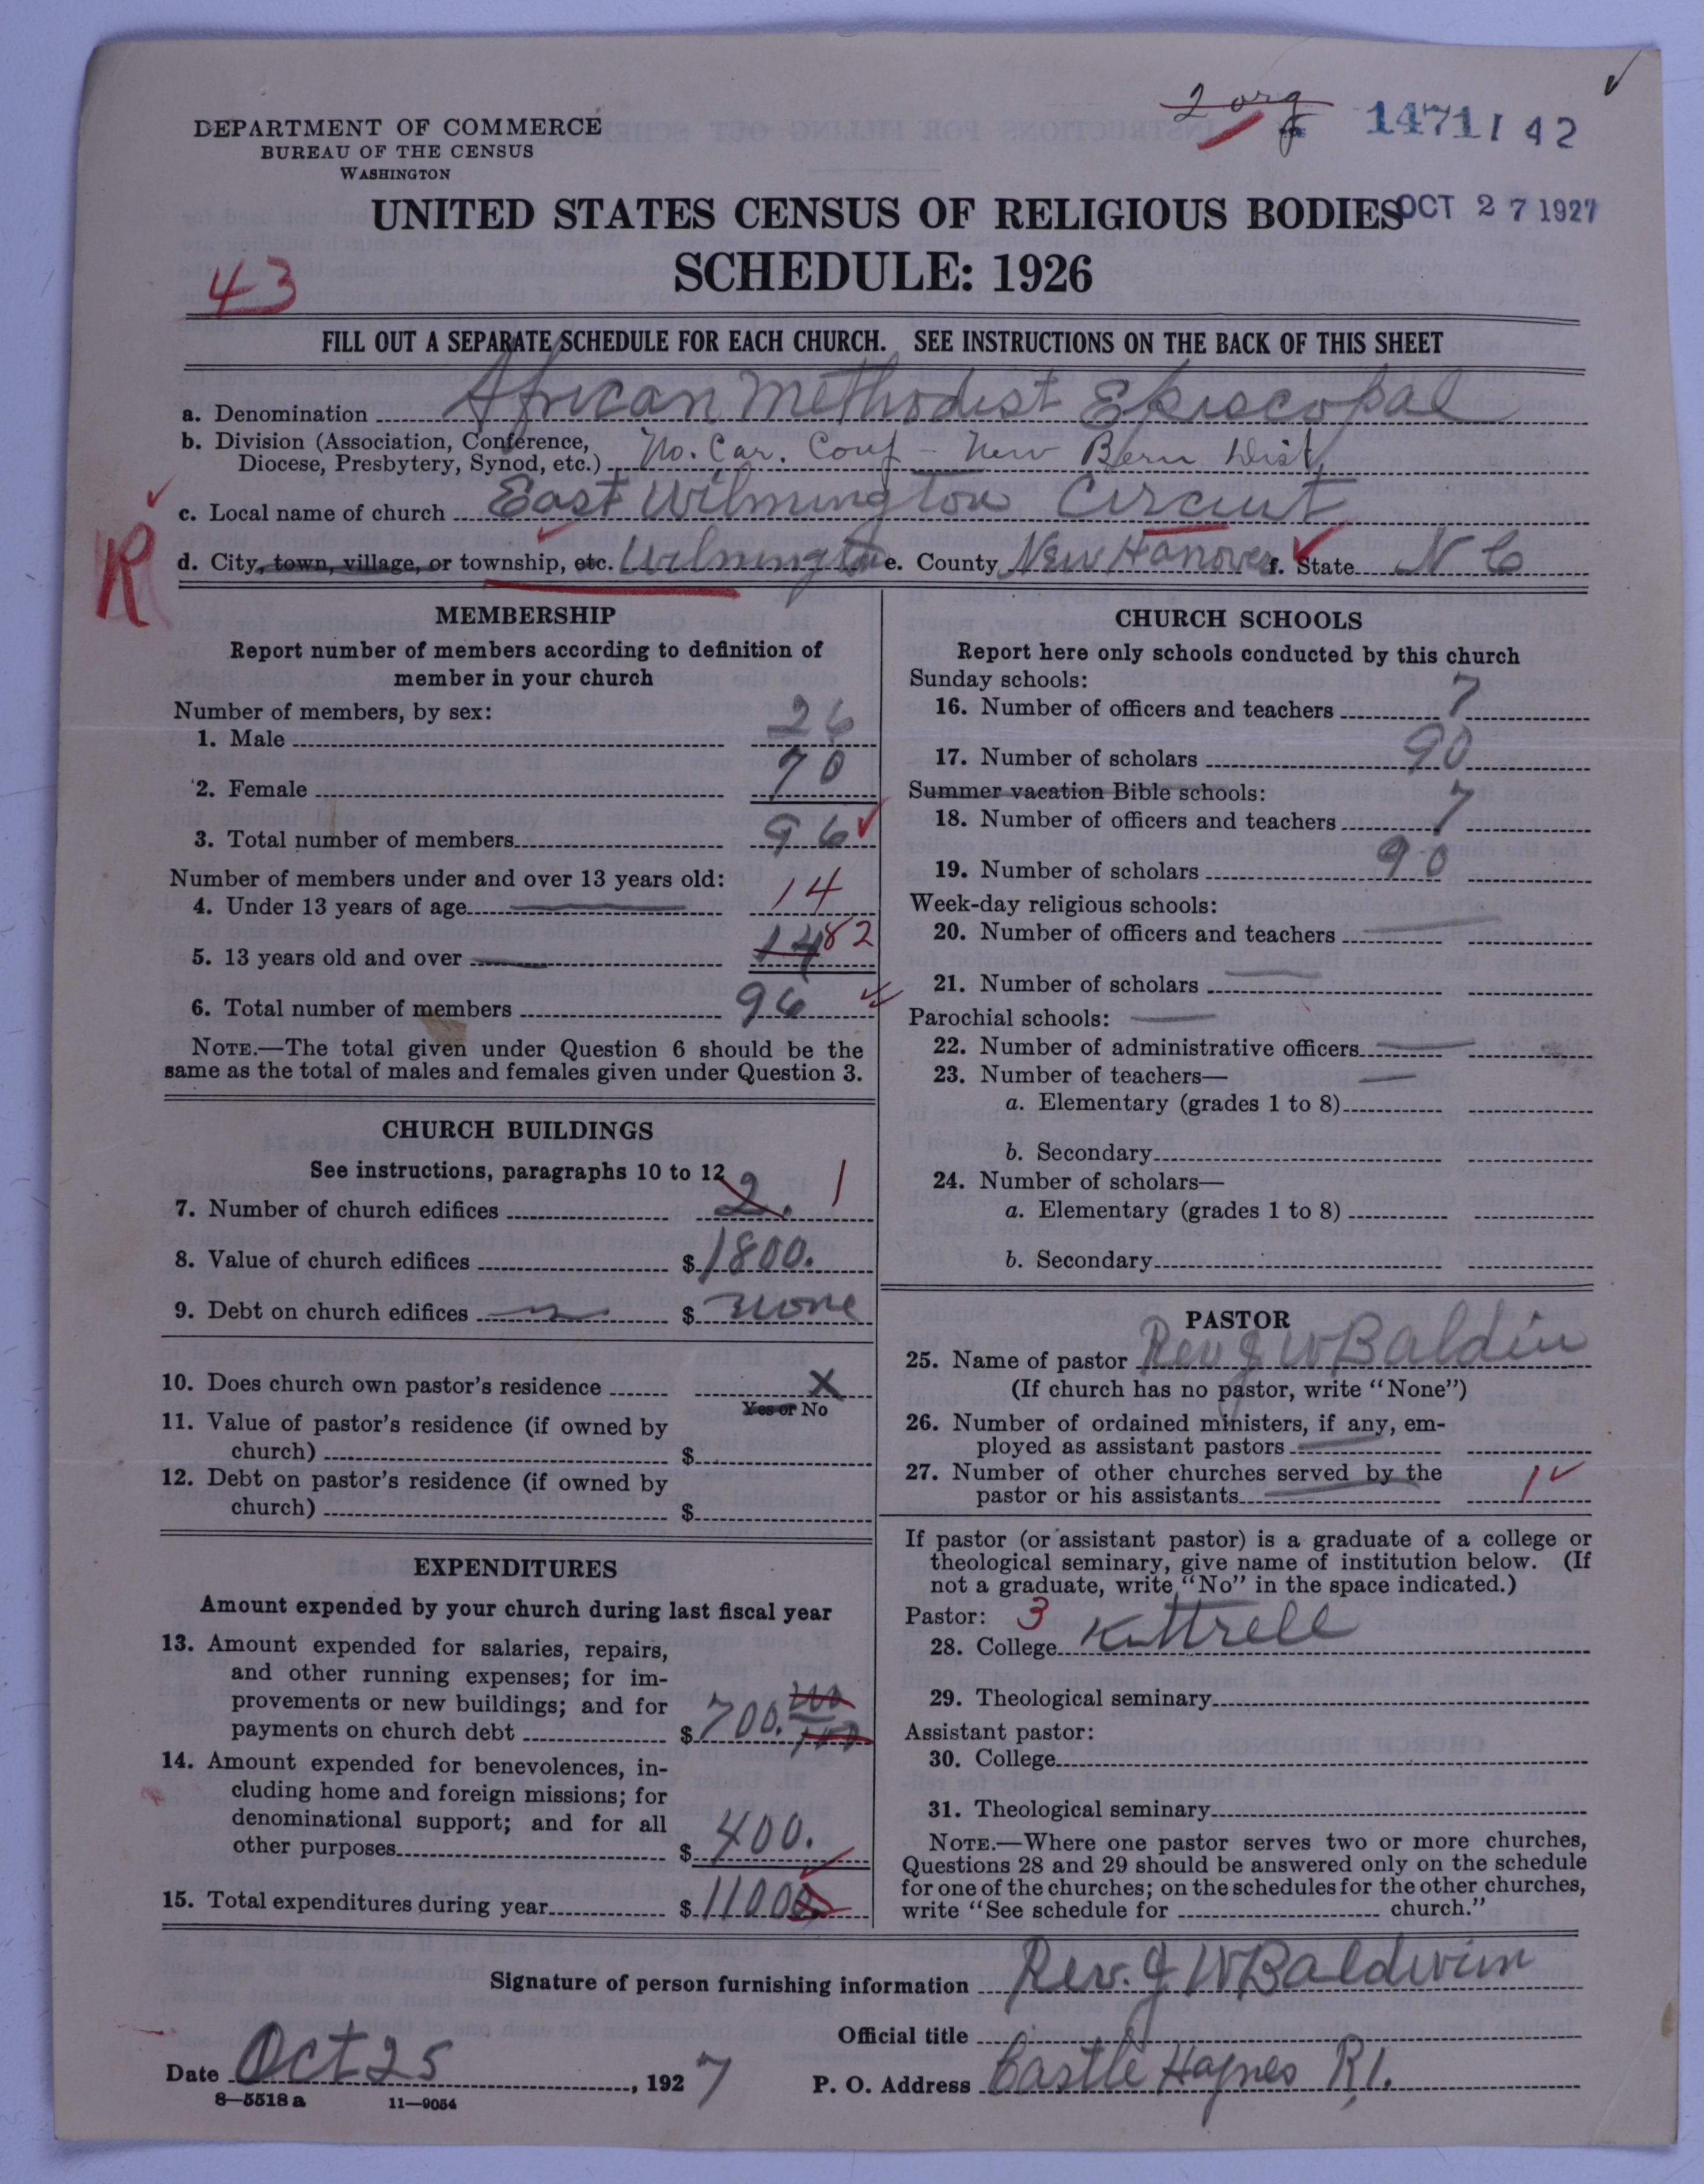 2 org
14711 42
DEPARTMENT OF COMMERCE
BUREAU OF THE CENSUS
WASHINGTON
UNITED STATES CENSUS OF RELIGIOUS BODIES OCT 27 1927
SCHEDULE: 1926
43
FILL OUT A SEPARATE SCHEDULE FOR EACH CHURCH. SEE INSTRUCTIONS ON THE BACK OF THIS SHEET
a. Denomination African Methodist Episcopal
b. Division (Association, Conference,
Diocese, Presbytery, Synod, etc.) No. Car. Conf - New Bern Dist,
c. Local name of church East Wilmington Circuit
R
d. City, town, village, or township, etc. Wilmington e. County New Hanover f. State N C
MEMBERSHIP
Report number of members according to definition of
member in your church
Number of members, by sex:
1. Male 26
2. Female 70
3. Total number of members 96
Number of members under and over 13 years old:
4. Under 13 years of age 14
5. 13 years old and over 14 82
6. Total number of members 96
NOTE.—The total given under Question 6 should be the
same as the total of males and females given under Question 3.
CHURCH BUILDINGS
See instructions, paragraphs 10 to 12
7. Number of church edifices 2. 1
8. Value of church edifices $ 1800.
9. Debt on church edifices $ none
10. Does church own pastor's residence X
Yes or No
11. Value of pastor's residence (if owned by
church) $
12. Debt on pastor's residence (if owned by
church) $
EXPENDITURES
Amount expended by your church during last fiscal year
13. Amount expended for salaries, repairs,
and other running expenses; for im-
provements or new buildings; and for
payments on church debt $ 700.
14. Amount expended for benevolences, in-
cluding home and foreign missions; for
denominational support; and for all
other purposes $ 400.
15. Total expenditures during year $ 1100
CHURCH SCHOOLS
Report here only schools conducted by this church
Sunday schools:
16. Number of officers and teachers 7
17. Number of scholars 90
Summer vacation Bible schools:
18. Number of officers and teachers 7
19. Number of scholars 90
Week-day religious schools:
20. Number of officers and teachers
21. Number of scholars
Parochial schools:
22. Number of administrative officers
23. Number of teachers—
a. Elementary (grades 1 to 8)
b. Secondary
24. Number of scholars—
a. Elementary (grades 1 to 8)
b. Secondary
PASTOR
25. Name of pastor Rev J W Baldin
(If church has no pastor, write "None")
26. Number of ordained ministers, if any, em-
ployed as assistant pastors
27. Number of other churches served by the
pastor or his assistants 1
If pastor (or assistant pastor) is a graduate of a college or
theological seminary, give name of institution below. (If
not a graduate, write "No" in the space indicated.)
Pastor: 3
28. College Kittrell
29. Theological seminary
Assistant pastor:
30. College
31. Theological seminary
NOTE.—Where one pastor serves two or more churches,
Questions 28 and 29 should be answered only on the schedule
for one of the churches; on the schedules for the other churches,
write "See schedule for church."
Signature of person furnishing information Rev. J W Baldwin
Official title
Date Oct 25, 1927
P. O. Address Castle Haynes R1.
8—5518 a 11—9054